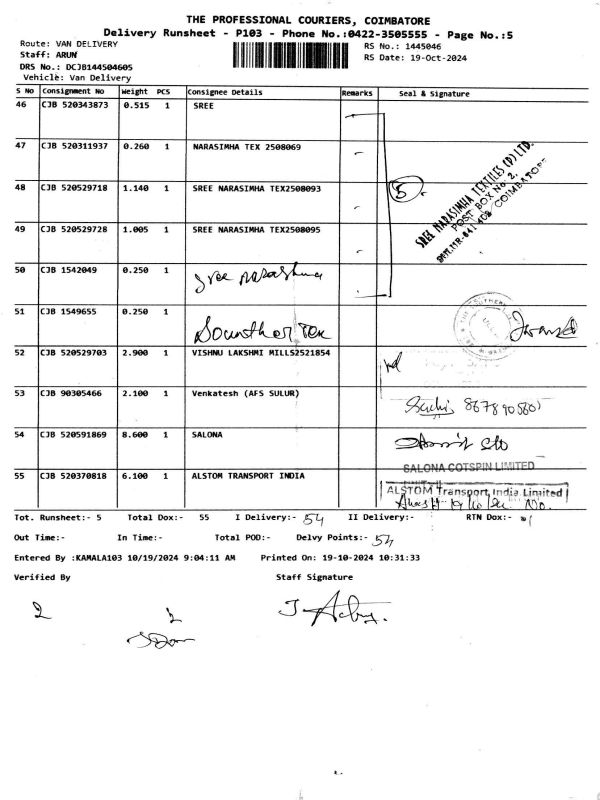 THE PROFESSIONAL COURIERS, COIMBATORE
Delivery Runsheet - P103 - Phone No.:0422-3505555 - Page No.:5
Route: VAN DELIVERY
RS No.: 1445046
Staff: ARUN
RS Date: 19-Oct-2024
DRS No.: DCJB144504605
Vehicle: Van Delivery
S No Consignment No Weight PCS Consignee Details Remarks Seal & Signature
46 CJB 520343873 0.515 1 SREE
47 CJB 520311937 0.260 1 NARASIMHA TEX 2508069
48 CJB 520529718 1.140 1 SREE NARASIMHA TEX2508093
5
SREE NARASIMHA TEXTILES (P) LTD.
POST BOX No. 2,
COIMBATORE
49 CJB 520529728 1.005 1 SREE NARASIMHA TEX2508095
50 CJB 1542049 0.250 1 Sree Narasimha
51 CJB 1549655 0.250 1 Tex
52 CJB 520529703 2.900 1 VISHNU LAKSHMI MILLS2521854
53 CJB 90305466 2.100 1 Venkatesh (AFS SULUR)
54 CJB 520591869 8.600 1 SALONA
SALONA COTSPIN LIMITED
55 CJB 520370818 6.100 1 ALSTOM TRANSPORT INDIA
ALSTOM Transport India Limited
Tot. Runsheet:- 5 Total Dox:- 55 I Delivery:- 54 II Delivery:- RTN Dox:- 1
Out Time:- In Time:- Total POD:- Delvy Points:- 54
Entered By :KAMALA103 10/19/2024 9:04:11 AM Printed On: 19-10-2024 10:31:33
Verified By Staff Signature